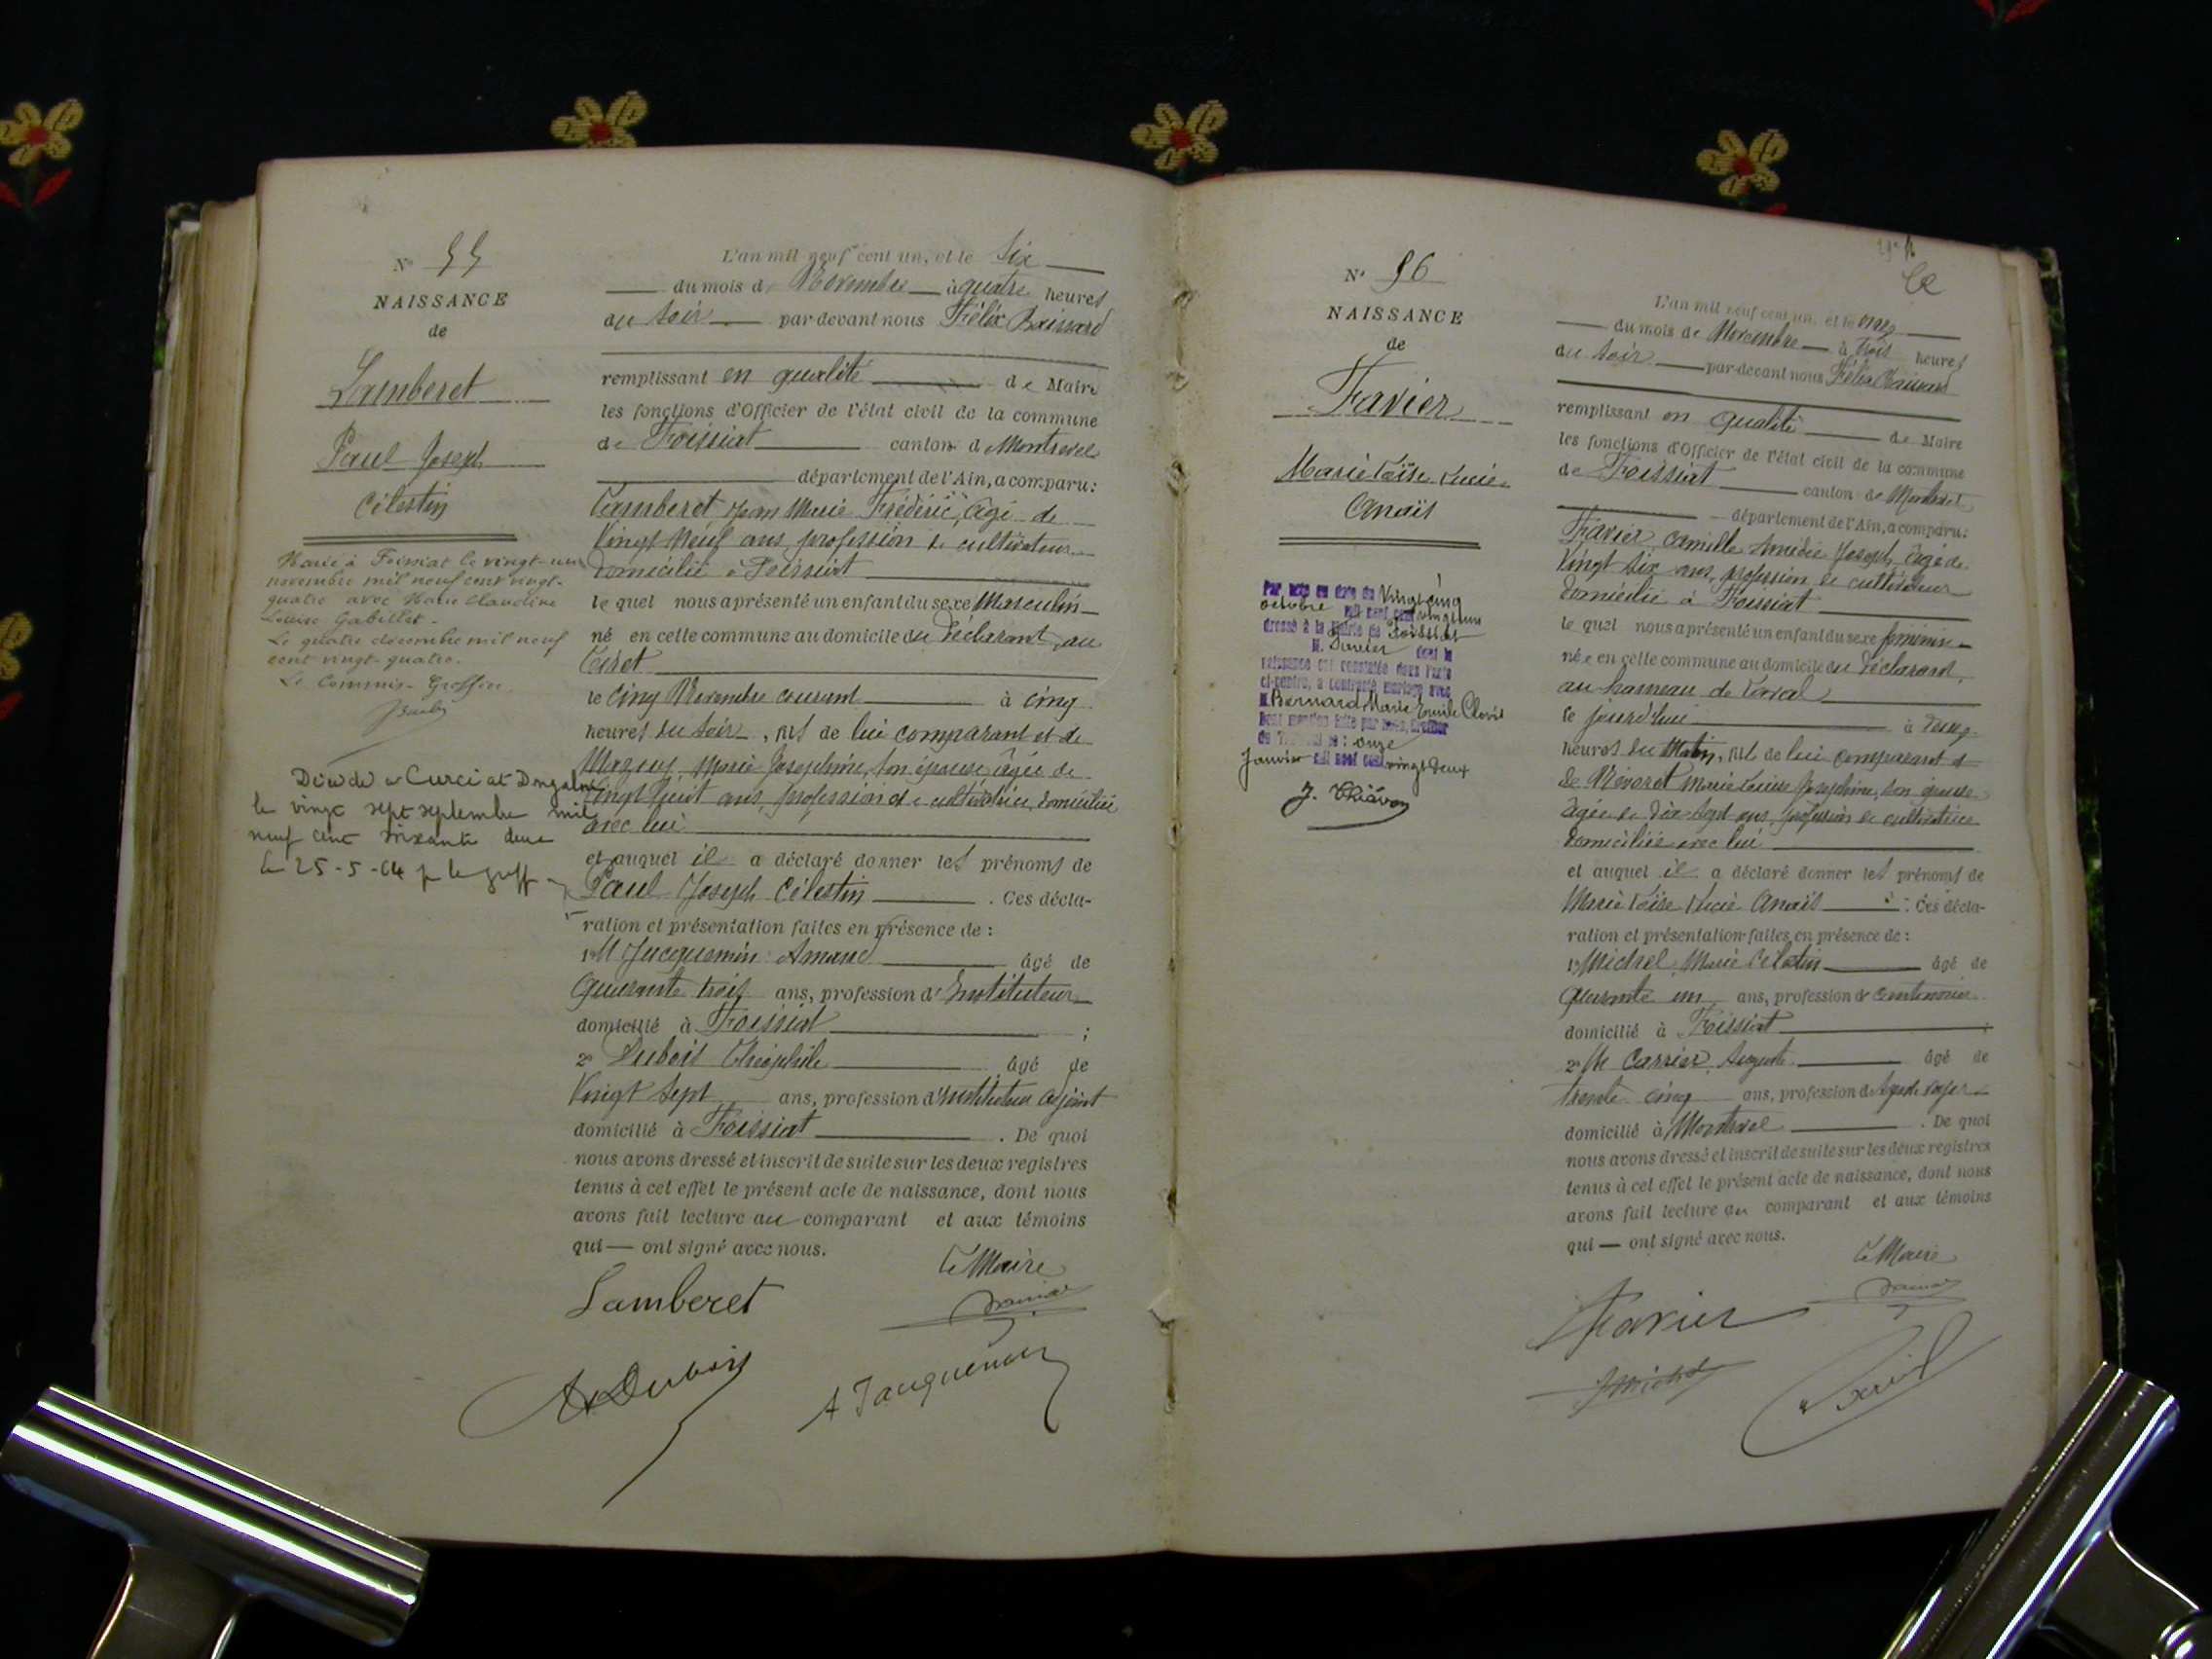 N° 55
NAISSANCE
de
Lamberet
Paul Joseph
Célestin
Marié à Foissiat le vingt-un
novembre mil neuf cent vingt-
quatre avec Marie Claudine
Louise Gabillet.
Le quatre décembre mil neuf
cent vingt-quatre.
Le Commis-Greffier
Décédé à Curciat-Dongalon
le vingt sept septembre mil
neuf cent soixante deux
Le 25-5-64 p le greff
L'an mil neuf cent un, et le six
du mois de Novembre à quatre heures
du soir par-devant nous Félix
remplissant en qualité de Maire
les fonctions d'Officier de l'état civil de la commune
de Foissiat canton d Montrevel
département de l'Ain, a comparu:
Lamberet Jean Marie Frédéric, âgé de
Vingt Neuf ans profession de cultivateur
domicilié à Foissiat
le quel nous a présenté un enfant du sexe Masculin
né en cette commune au domicile du déclarant, au
le cinq Novembre courant à cinq
heures du soir, fils de lui comparant et de
Marie Joséphine, son épouse, âgée de
Vingt huit ans, profession de cultivatrice, domiciliée
avec lui
et auquel il a déclaré donner les prénoms de
Paul Joseph Célestin . Ces décla-
ration et présentation faites en présence de :
1° M Jacquemin Amand âgé de
Quarante trois ans, profession d'Instituteur
domicilié à Foissiat ;
2° Dubois Théophile âgé de
Vingt sept ans, profession d'instituteur adjoint
domicilié à Foissiat . De quoi
nous avons dressé et inscrit de suite sur les deux registres
tenus à cet effet le présent acte de naissance, dont nous
avons fait lecture au comparant et aux témoins
qui — ont signé avec nous.
Le Maire
Lamberet
Dubois
A Jacquemin
N° 56
NAISSANCE
de
Favier
Marie Loïse Lucie
Anaïs
Par acte en date du Vingt cinq
octobre mil neuf cent vingt un
dressé à la Mairie de Foissiat
M. Favier dont la
naissance est constatée dans l'acte
ci-contre, a contracté mariage avec
M Bernard Marie Emile Clovis
Dont mention faite par nous, Greffier
onze
Janvier mil neuf cent vingt deux
L'an mil neuf cent un, et le onze
du mois de Novembre à trois heures
du soir par-devant nous Félix
remplissant en qualité de Maire
les fonctions d'Officier de l'état civil de la commune
de Foissiat canton de Montrevel
département de l'Ain, a comparu:
Favier, Camille Amédée Joseph, âgé de
Vingt six ans, profession de cultivateur
domicilié à Foissiat
le quel nous a présenté un enfant du sexe féminin
née en cette commune au domicile du déclarant,
au hameau de
le jourd'hui à
heures du Matin, fils de lui comparant et
de Marie Louise Joséphine, son épouse
âgée de dix-sept ans, profession de cultivatrice
domiciliée avec lui
et auquel il a déclaré donner les prénoms de
Marie Loïse Lucie Anaïs . Ces décla-
ration et présentation faites en présence de :
1° Michel Marie Célestin âgé de
Quarante un ans, profession de cantonnier
domicilié à Foissiat ;
2° M Carrier Auguste âgé de
trente cinq ans, profession d'Agent voyer
domicilié à Montrevel . De quoi
nous avons dressé et inscrit de suite sur les deux registres
tenus à cet effet le présent acte de naissance, dont nous
avons fait lecture au comparant et aux témoins
qui — ont signé avec nous.
Le Maire
Favier
Michel